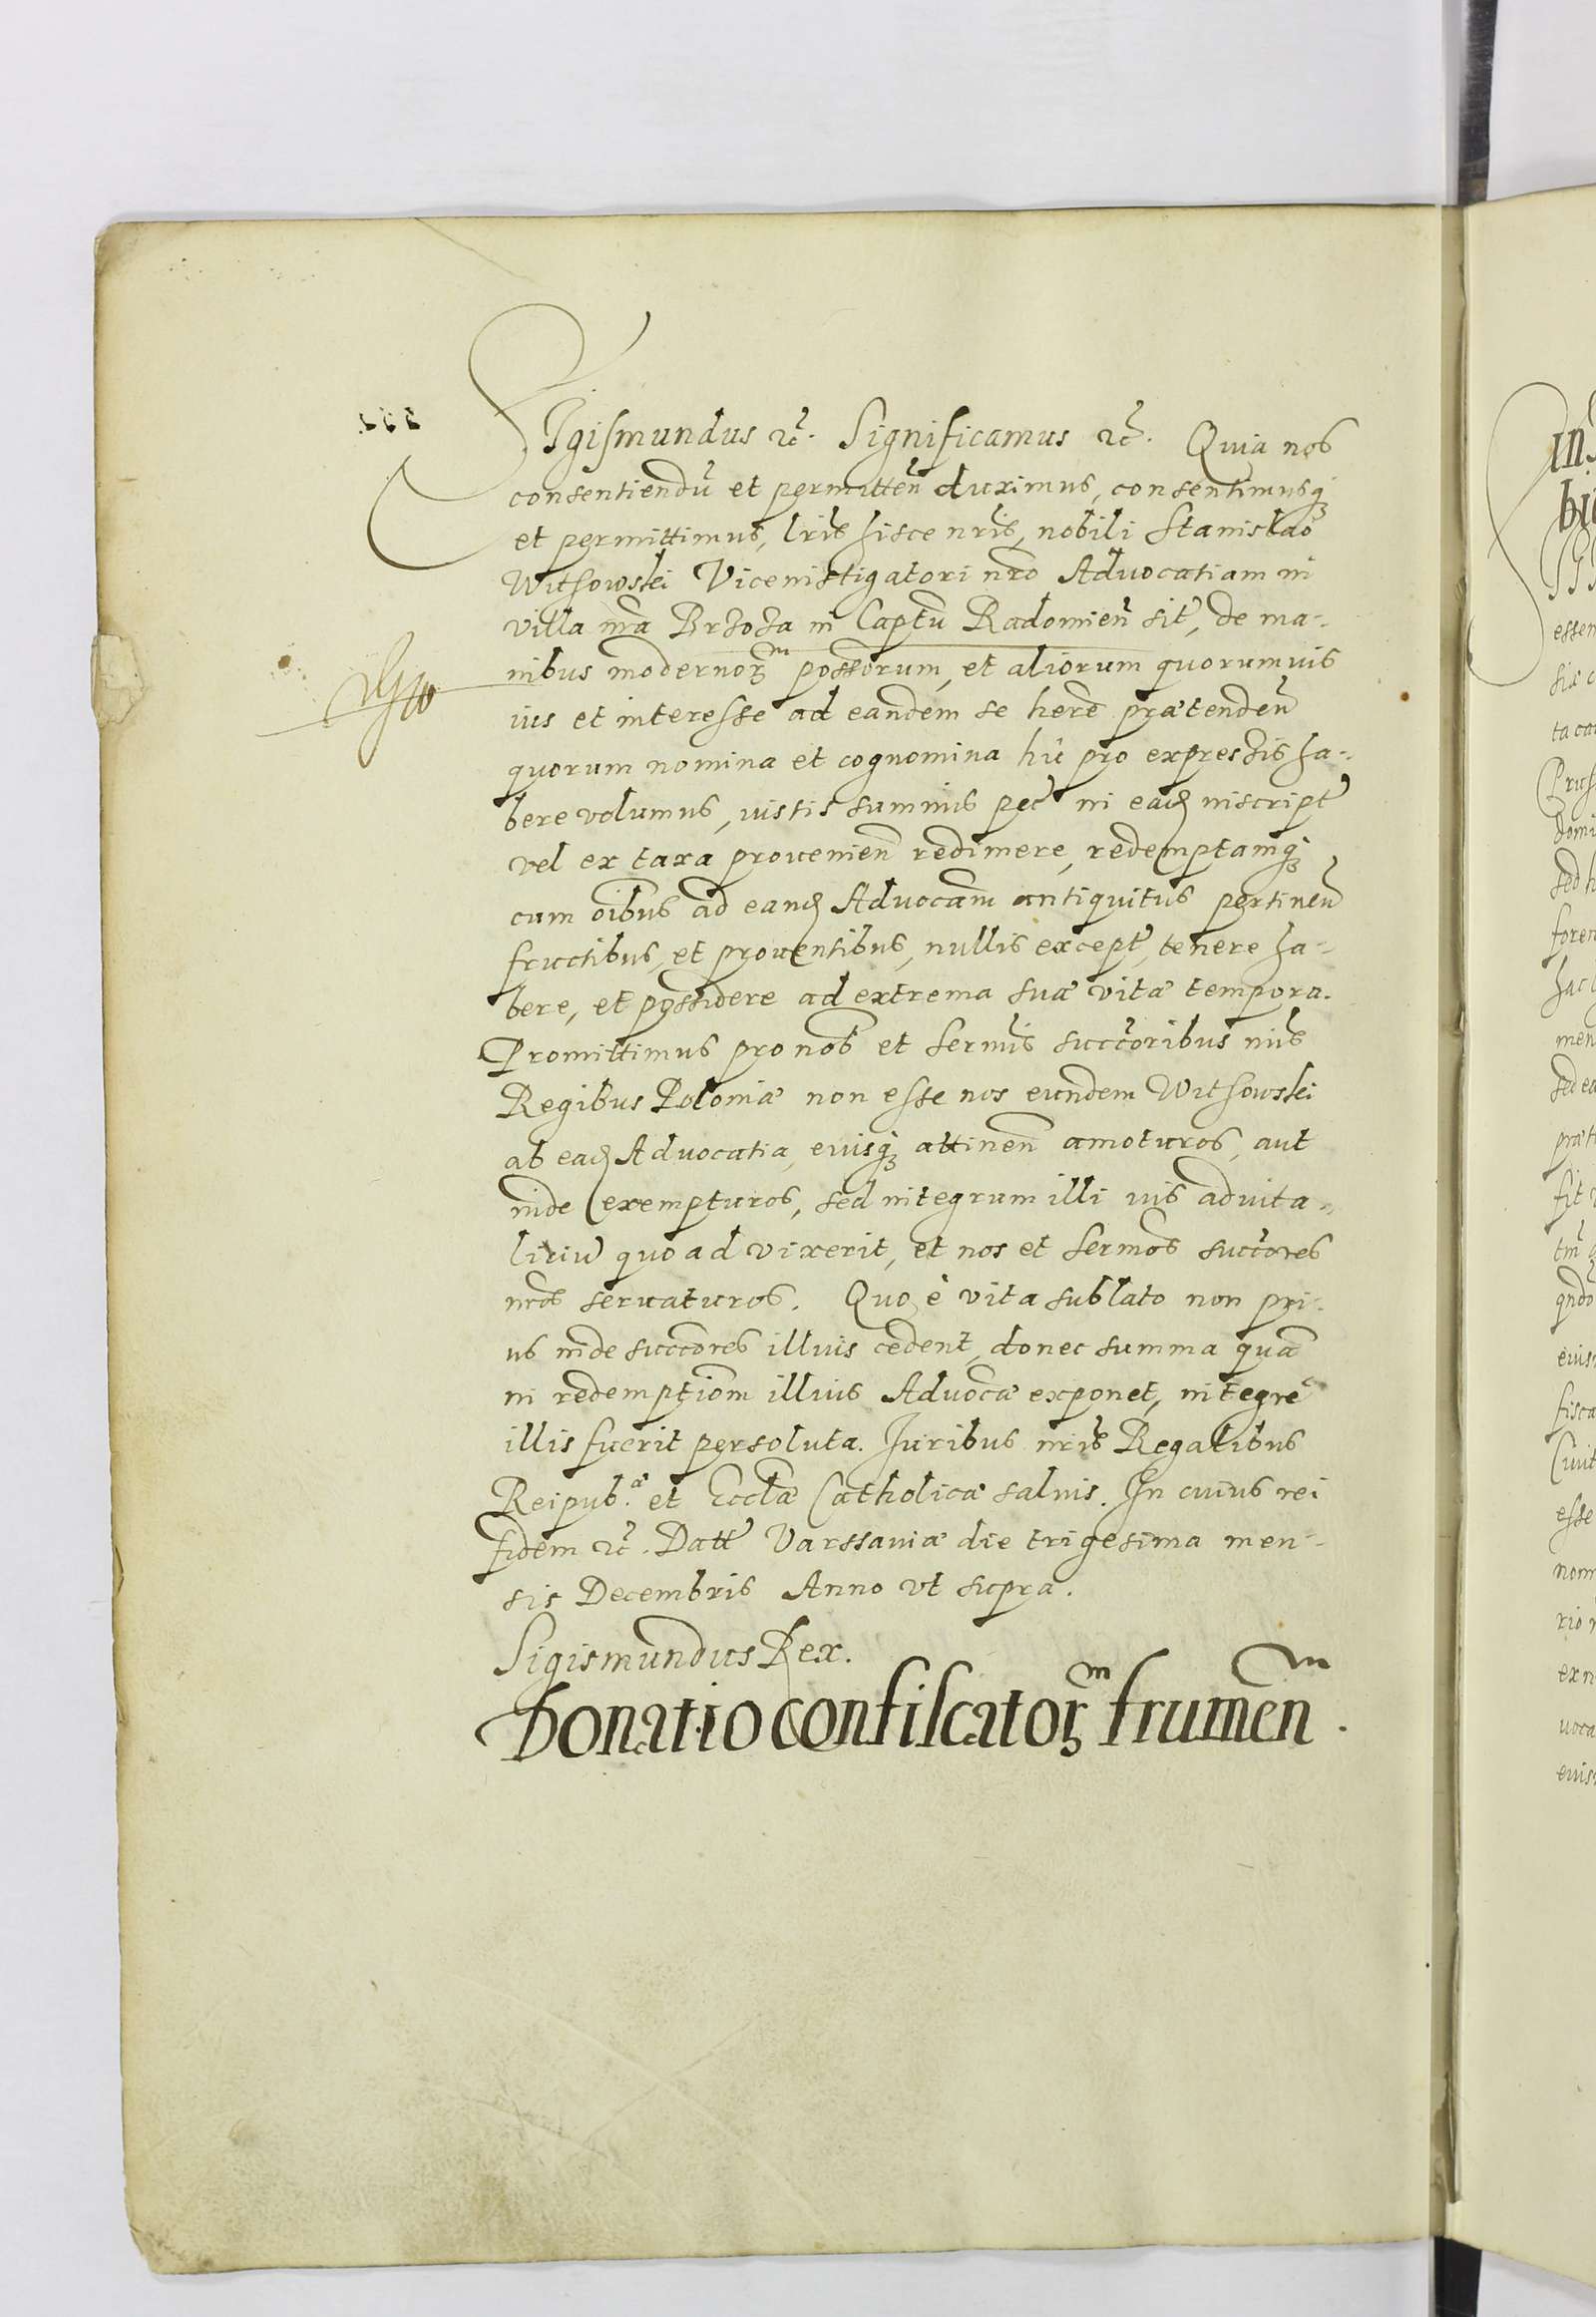 SIgismundus etc. Significamus etc. Quia nos
consentiendū et permitten̄ duximus, consentimusq₃
et permittimus, lrīs hisce nrīs, nobili Stanislao
Witſowski Viceinstigatori nrō Advocatiam in
villa nrā Brzoza in Captū Radomien̄ sit̄, de ma-
nibus modernoꝝ possorum, et aliorum quorumvis
ius et interesse ad eandem se herē prætenden̄
quorum nomina et cognomina hic pro expressis ha-
bere volumus, iustis summis pec̄ in eađ inscript̄
vel ex taxa provenien̄ redimere, redemptamq₃
cum oībus ad eanđ Advocām antiquitus pertinen̄
fructibus, et proventibus, nullis except̄, tenere ha-
bere, et possidere ad extrema suæ vitæ tempora.
Promittimus pro nob̄ et Sermīs succōribus nrīs
Regibus Poloniæ non esse nos eundem Witſowski
ab eađ Advocatia, eiusq₃ attinen̄ amoturos, aut
inde exempturos, sed integrum illi ius advita-
litiū quoad vixerit, et nos et Sermōs succōres
nrōs servaturos. Quo è vita sublato non pri-
us inde succōres illius cedent, donec summa quā
in redemptiōm illius Advocæ exponet, integrè
illis fuerit persoluta. Juribus nrīs Regalibus
Reipub.æ et Ecclæ Catholicæ salvis. In cuius rei
fidem etc. Datt̄ Varssaviæ die trigesima men-
sis Decembris Anno vt supra.
Sigismundus Rex.
Donatio confiscatoꝝm frumen̄.